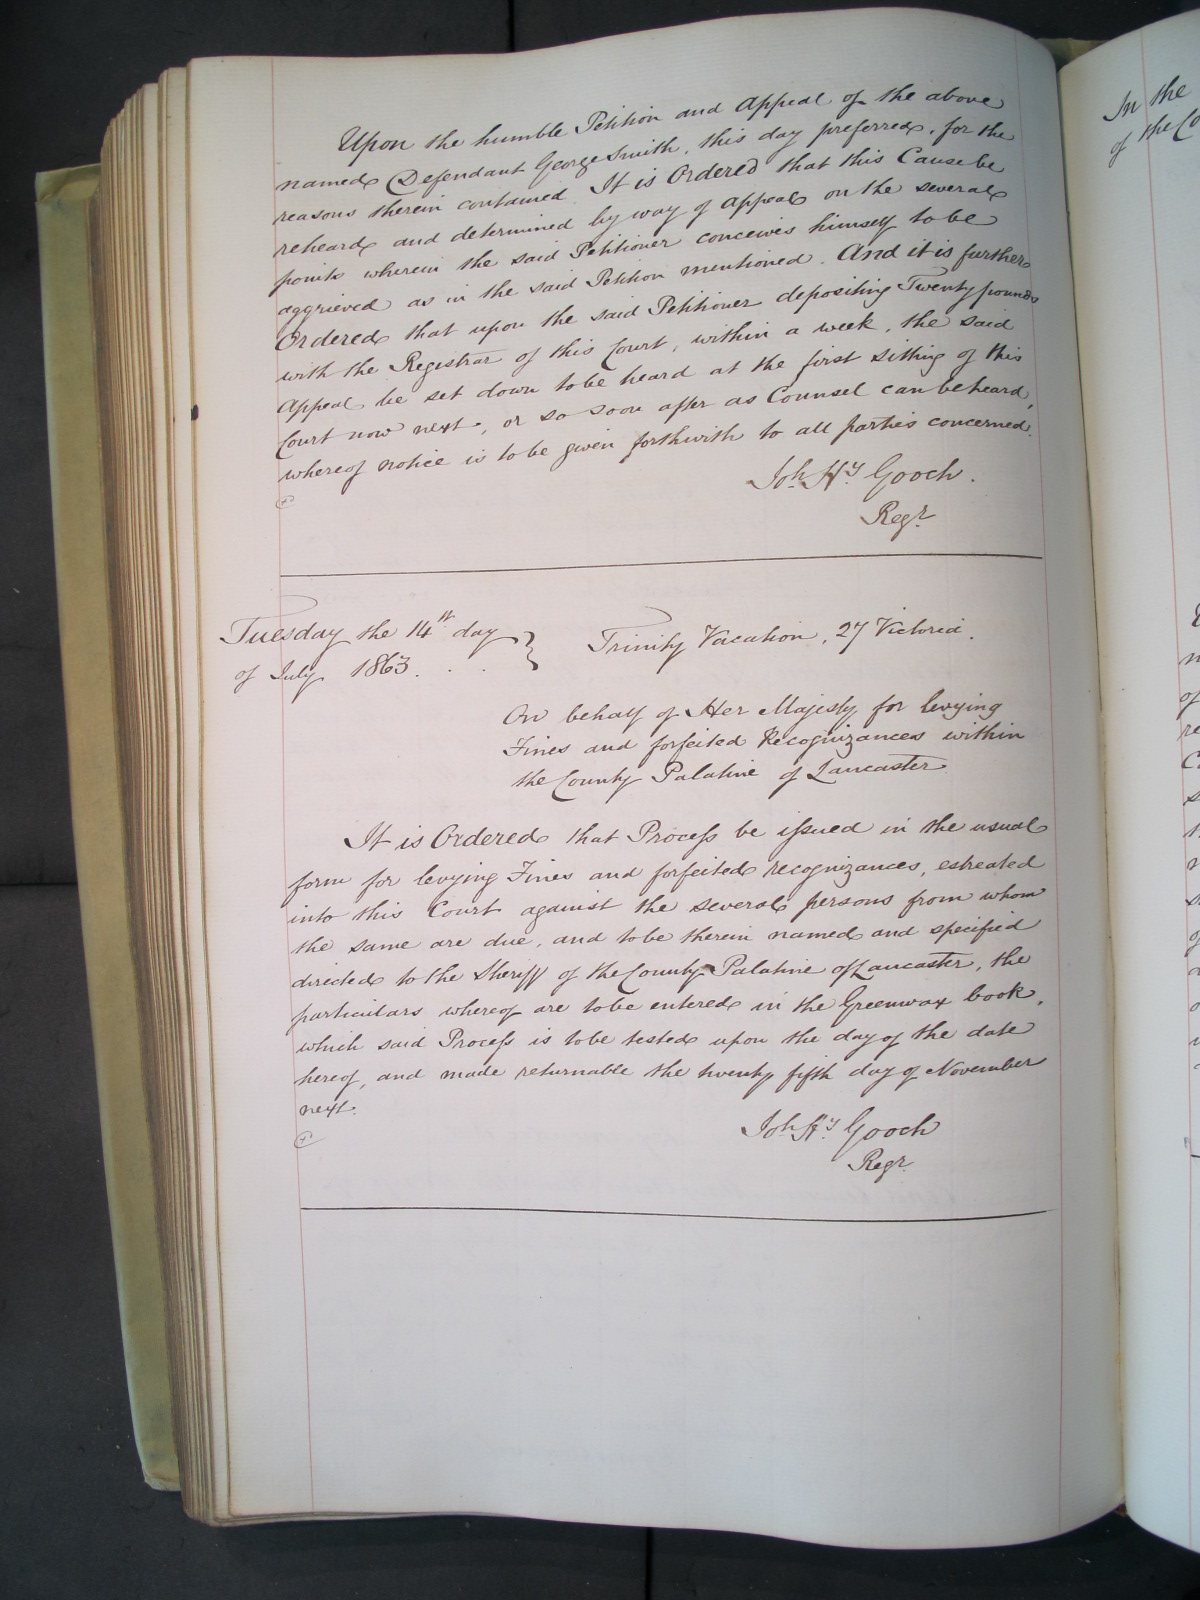 Upon the humble Petition and Appeal of the above
named Defendant George Smith, this day preferred, for the
reasons therein contained It is Ordered that this Cause be
reheard and determined by way of appeal on the several
points wherein the said Petitioner conceives himself to be
aggrieved as in the said Petition mentioned. And it is further
Ordered that upon the said Petitioner depositing Twenty pounds
with the Registrar of this Court, within a week, the said
Appeal be set down to be heard at the first sitting of this
Court now next, or so soon after as Counsel can be heard,
whereof notice is to be given forthwith to all parties concerned.
Joh. Hy. Gooch.
Regr.
Tuesday the 14th day
of July 1863. . .
Trinity Vacation, 27 Victoria.
On behalf of Her Majesty for levying
Fines and forfeited Recognizances within
the County Palatine of Lancaster
It is Ordered that Process be issued in the usual
form for levying Fines and forfeited recognizances, estreated
into this Court against the several persons from whom
the same are due, and to be therein named and specified
directed to the Sheriff of the County Palatine of Lancaster, the
particulars whereof are to be entered in the Greenwax book,
which said Process is to be tested upon the day of the date
hereof, and made returnable the twenty fifth day of November
next.
Joh. Hy. Gooch
Regr.
In the
of the Co